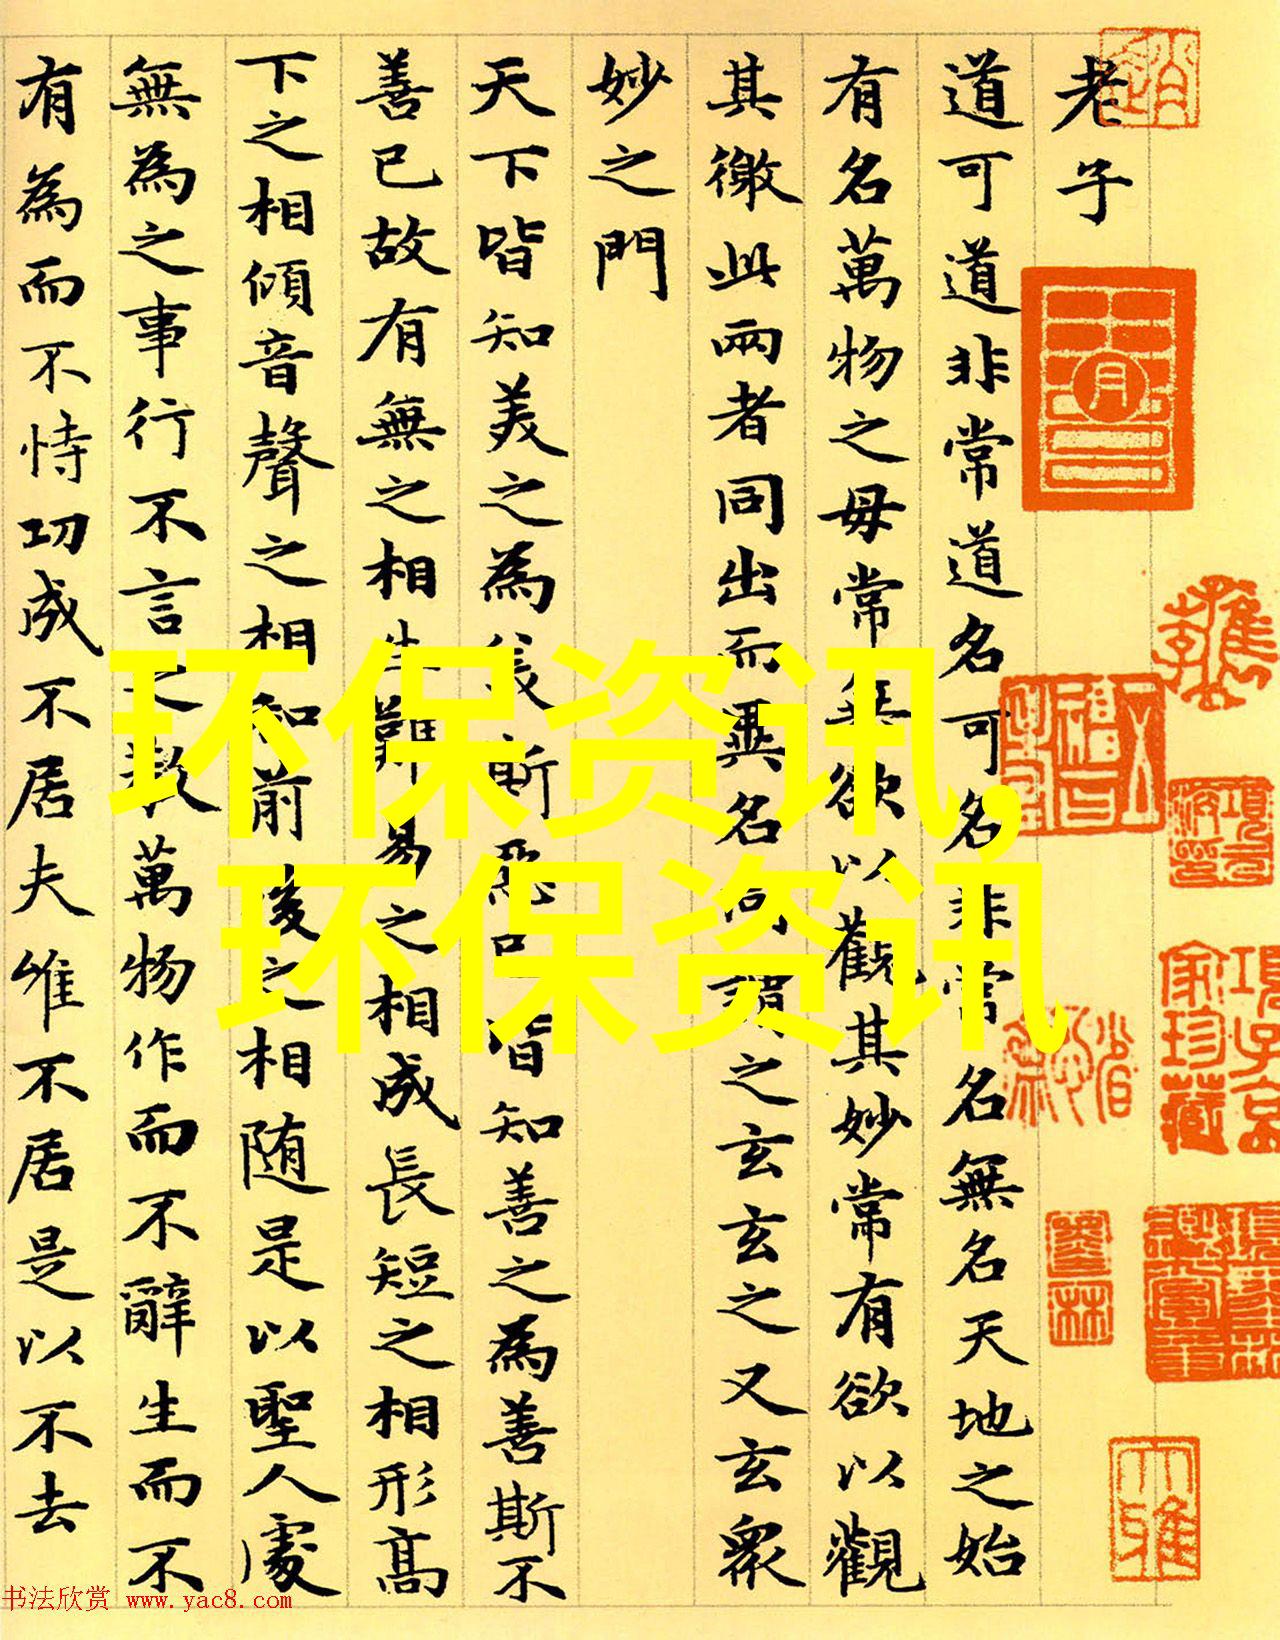 老子
道可道非常道名可名非常名無名天地之始
有名萬物之母常無欲以觀其妙常有欲以觀
其徼此兩者同出而異名同謂之玄玄之又玄衆
妙之門
天下皆知美之為美斯惡已皆知善之為善斯不
善已故有無之相生難易之相成長短之相形高
下之相傾音聲之相和前後之相随是以聖人處
無為之事行不言之教萬物作而不辭生而不
有為而不恃功成不居夫唯不居是以不去
环保资讯,
环保资讯
项子京
家珍藏
书法欣赏 www.yac8.com